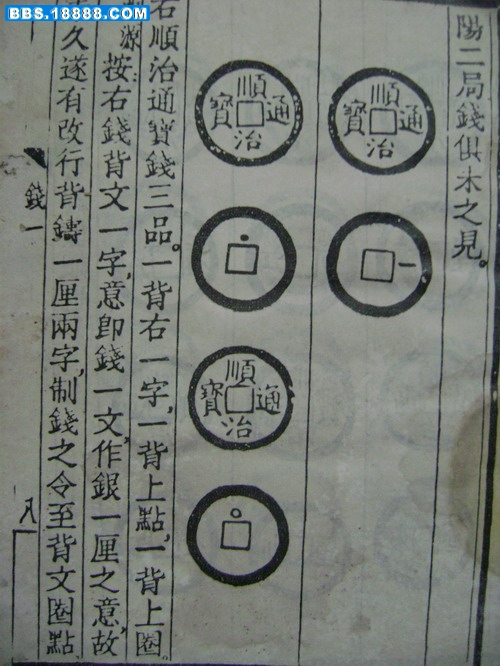 BBS.18888.COM
陽二局錢俱未之見。
順治通寶
一
順治通寶
順治通寶
右順治通寶錢三品。一背右一字,一背上點,一背上圈。
源
按右錢背文一字,意即錢一文,作銀一厘之意,故
久遂有改行背鑄一厘兩字,制錢之令至背文圈點
錢一
八